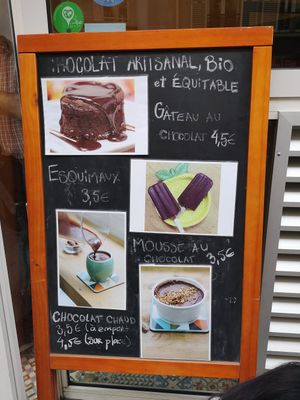 CHOCOLAT ARTISANAL, BIO
et ÉQUITABLE
GÂTEAU AU
CHOCOLAT 4,5€
ESQUIMAUX
3,5€
MOUSSE AU
CHOCOLAT 3,5€
CHOCOLAT CHAUD
3,5€ (à emporter)
4,5€ (sur place)